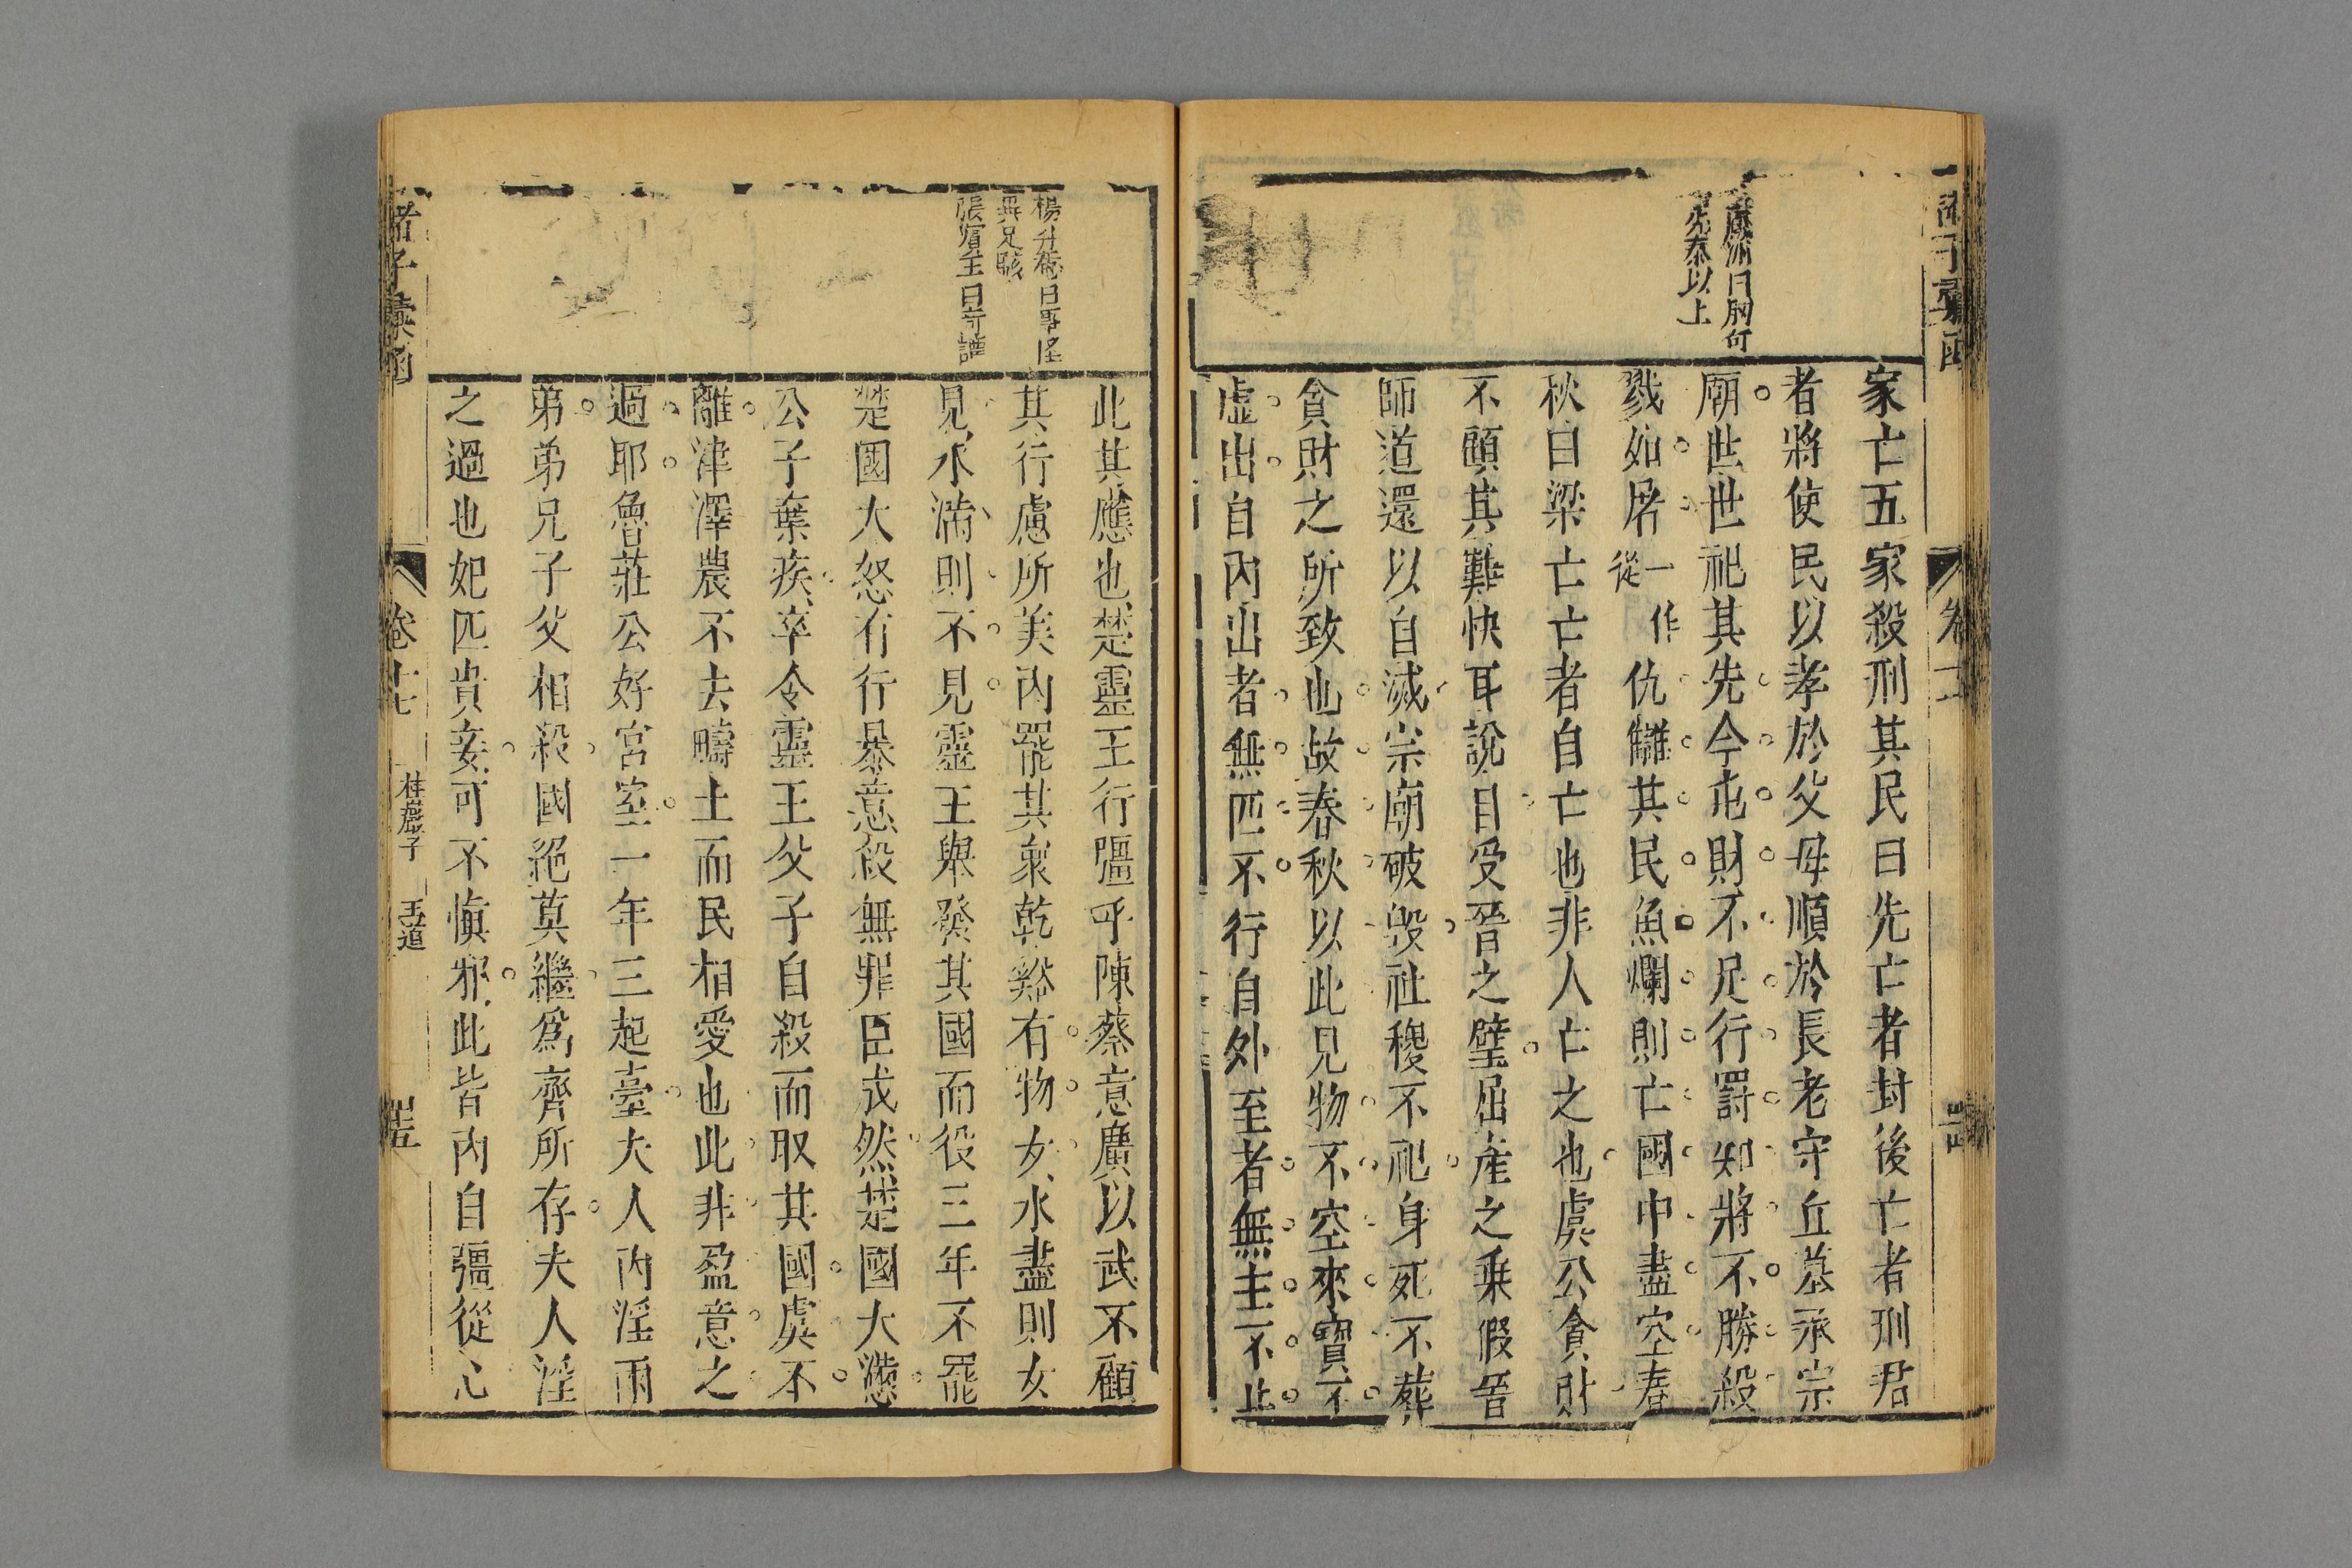 家亡五家殺刑其民曰先亡者封後亡者刑君
者將使民以孝於父母順於長老守丘墓承宗
廟世世祀其先今屯財不足行罰如將不勝殺
戮如屠一作從仇讎其民魚爛則亡國中盡空春
秋曰梁亡亡者自亡也非人亡之也虞公貪財
不顧其難快耳說目受晉之璧屈產之乘假晉
師道還以自滅宗廟破毀社稷不祀身死不葬
貪財之所致也故春秋以此見物不空來寶不
虛出自內出者無匹不行自外至者無主不止
先秦以上
此其應也楚靈王行彊乎陳蔡意廣以武不顧
其行慮所美內罷其衆乾谿有物女水盡則女
見水滿則不見靈王舉發其國而役三年不罷
楚國大怒有行暴意殺無罪臣成然楚國大懣
公子棄疾卒令靈王父子自殺而取其國虞不
離津澤農不去疇土而民相愛也此非盈意之
過耶魯莊公好宮室一年三起臺夫人內淫兩
弟弟兄子父相殺國絕莫繼爲齊所存夫人淫
之過也妃匹貴妾可不慎邪此皆內自彊從心
楊升菴曰事怪
張賓王曰奇譚
諸子彙函
卷十七
桂巖子
王道